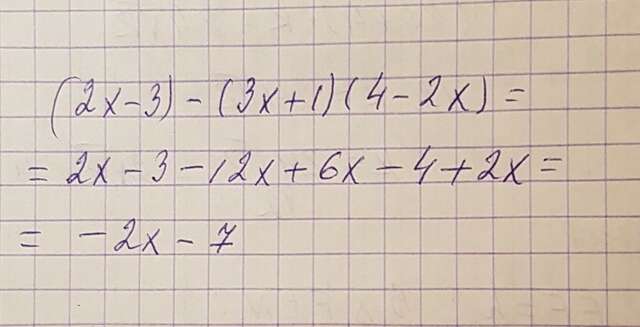 (2x-3)-(3x+1)(4-2x)=
=2x-3-12x+6x-4+2x=
=-2x-7